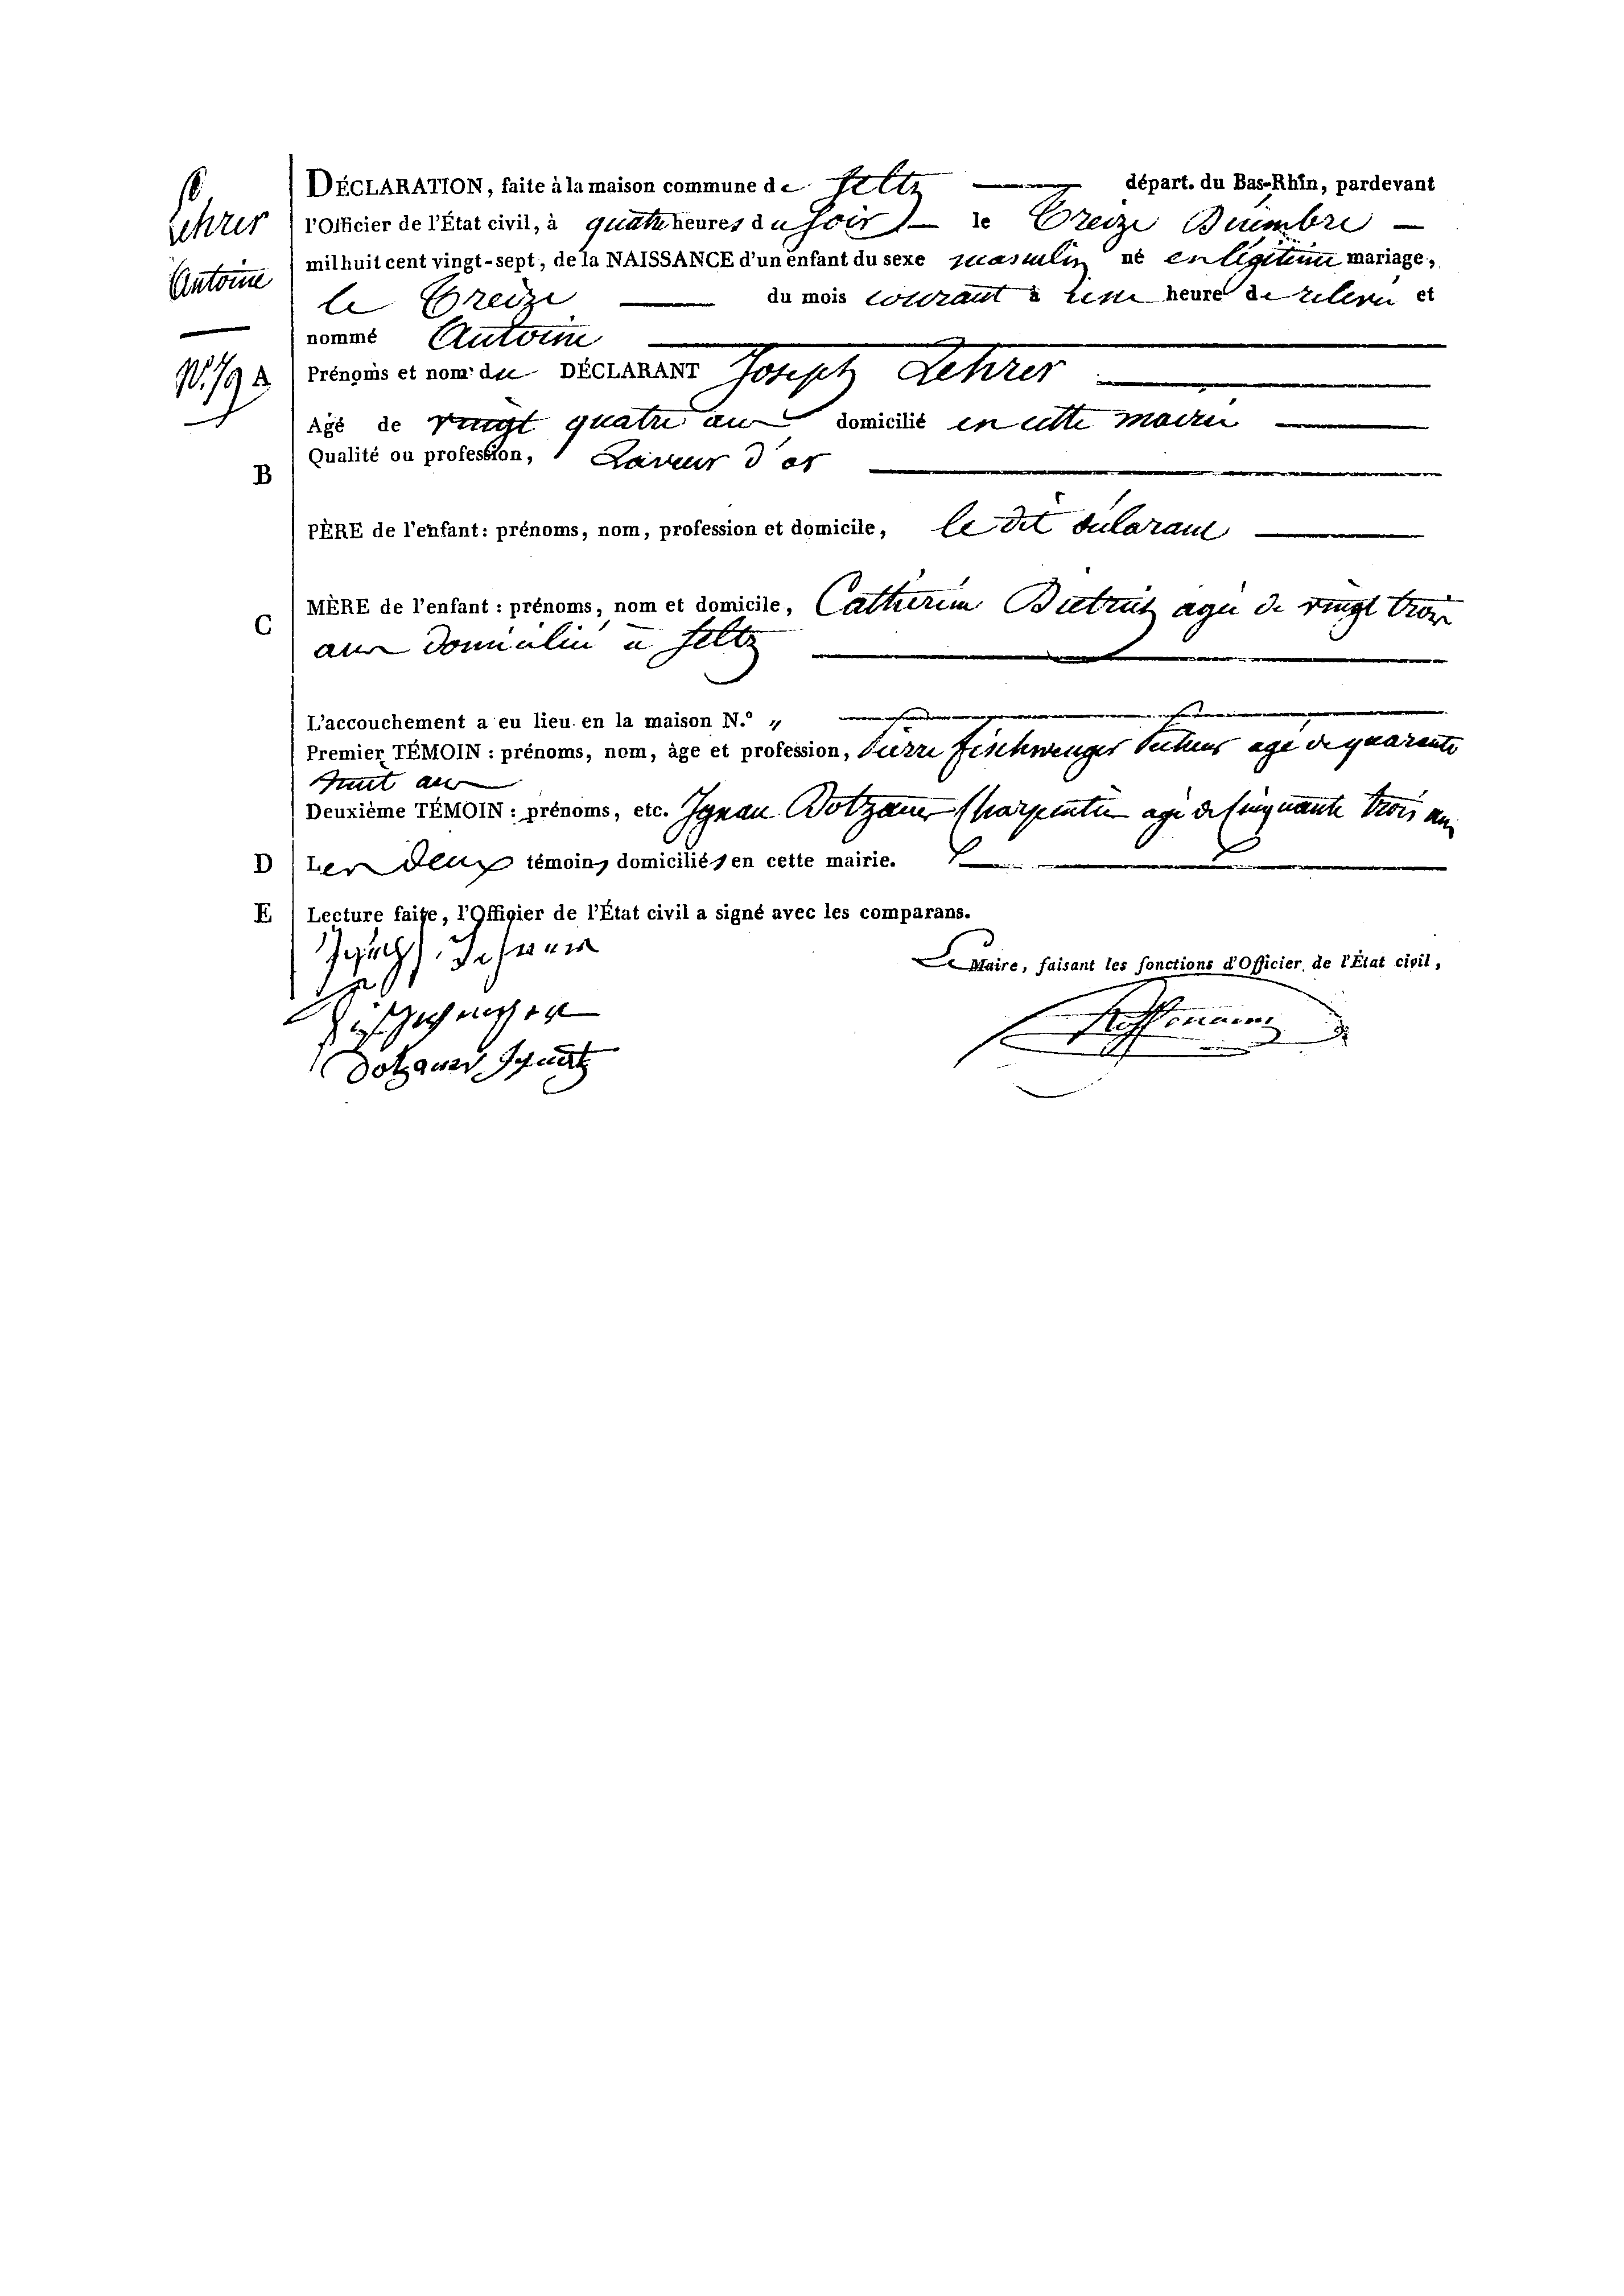 Lehrer
Antoine
N.º 79 A
DÉCLARATION, faite à la maison commune de Seltz départ. du Bas-Rhin, pardevant
l'Officier de l'État civil, à quatre heures du Soir le Treize Décembre
mil huit cent vingt-sept, de la NAISSANCE d'un enfant du sexe masculin né en légitime mariage,
le Treize du mois courant à une heure de relevée et
nommé Antoine
Prénoms et nom du DÉCLARANT Joseph Lehrer
Agé de vingt quatre ans domicilié en cette mairie
B Qualité ou profession, Laveur d'or
PÈRE de l'enfant : prénoms, nom, profession et domicile, le dit déclarant
C MÈRE de l'enfant : prénoms, nom et domicile, Catherine Dietrich agée de vingt trois
ans domiciliée à Seltz
L'accouchement a eu lieu en la maison N.º „
Premier TÉMOIN : prénoms, nom, âge et profession, Pierre Fischwenger agé de quarante
huit ans
Deuxième TÉMOIN : prénoms, etc. Ignace Dotzauer Charpentier agé de Cinquante trois ans
D Les deux témoins domiciliés en cette mairie.
E Lecture faite, l'Officier de l'État civil a signé avec les comparans.
Joseph Lehrer
Le Maire, faisant les fonctions d'Officier de l'État civil,
Dotzauer Ignatz